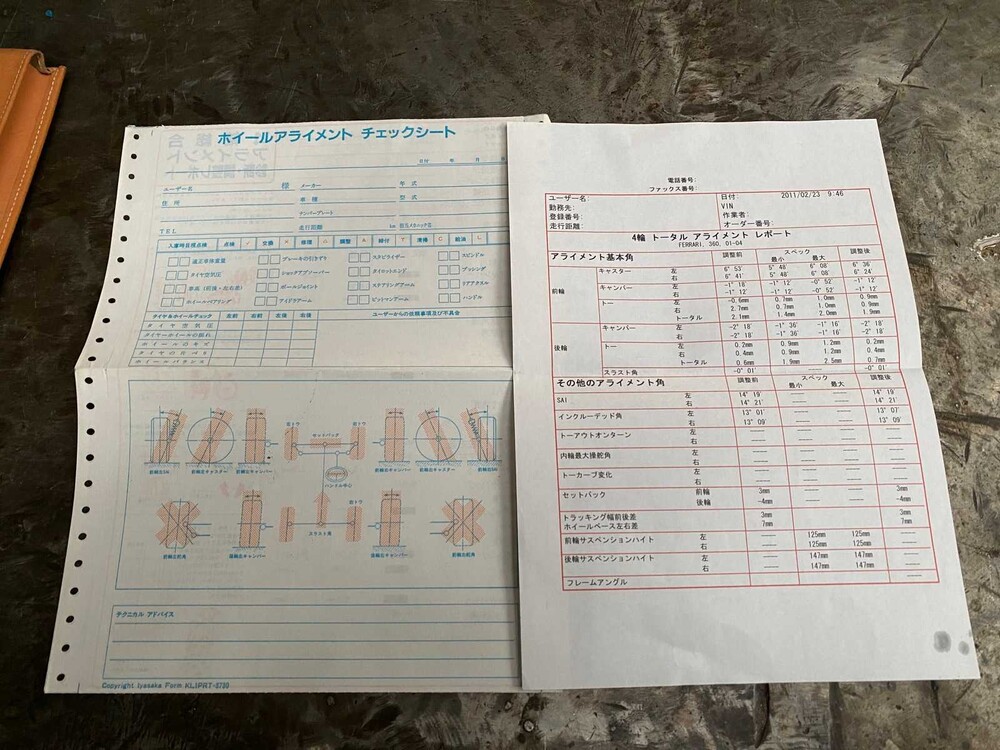 ホイールアライメント チェックシート
日付 年 月
ユーザー名 様 メーカー 年 式
住 所 車 種 型 式
ナンバープレート
TEL 走行距離 km
入庫時目視点検 点検 ✓ 交換 × 修理 △ 調整 A 締付 T 清掃 C 給油 L
適正車体重量 ブレーキの引きずり スタビライザー スピンドル
タイヤ空気圧 ショックアブソーバー タイロッドエンド ブッシング
車高(前後・左右差) ボールジョイント ステアリングアーム リヤアクスル
ホイールベアリング アイドラアーム ピットマンアーム ハンドル
タイヤ&ホイールチェック 左前 右前 左後 右後 ユーザーからの依頼事項及び不具合
タイヤ空気圧
タイヤ・ホイールの振れ
ホイールのキズ
タイヤの片べり
ホイールバランス
セットバック
ハンドル中心
スラスト角
テクニカル アドバイス
Copyright Iyasaka Form KLIPRT-5700
電話番号:
ファックス番号:
ユーザー名: 日付 2011/02/23 9:46
勤務先: VIN
登録番号: 作業者:
走行距離: オーダー番号:
4輪 トータル アライメント レポート
FERRARI, 360, 01-04
アライメント基本角 調整前 スペック 調整後
最小 最大
前輪 キャスター 左 6° 53' 5° 48' 6° 08' 6° 36'
右 6° 41' 5° 48' 6° 08' 6° 24'
キャンバー 左 -1° 18' -1° 12' -0° 52' -1° 12'
右 -1° 12' -1° 12' -0° 52' -1° 12'
トー 左 -0.6mm 0.7mm 1.0mm 0.9mm
右 2.7mm 0.7mm 1.0mm 0.9mm
トータル 2.1mm 1.4mm 2.0mm 1.9mm
後輪 キャンバー 左 -2° 18' -1° 36' -1° 16' -2° 18'
右 -2° 18' -1° 36' -1° 16' -2° 18'
トー 左 0.2mm 0.9mm 1.2mm 0.2mm
右 0.4mm 0.9mm 1.2mm 0.4mm
トータル 0.6mm 1.9mm 2.5mm 0.7mm
スラスト角 -0° 01' -0° 01'
その他のアライメント角 調整前 スペック 調整後
最小 最大
SAI 左 14° 19' 14° 19'
右 14° 21' 14° 21'
インクルーデッド角 左 13° 01' 13° 07'
右 13° 09' 13° 09'
トーアウトオンターン 左
右
内輪最大操舵角 左
右
トーカーブ変化 左
右
セットバック 前輪 3mm 3mm
後輪 -4mm -4mm
トラッキング幅前後差 3mm 3mm
ホイールベース左右差 7mm 7mm
前輪サスペンションハイト 左 125mm 125mm
右 125mm 125mm
後輪サスペンションハイト 左 147mm 147mm
右 147mm 147mm
フレームアングル